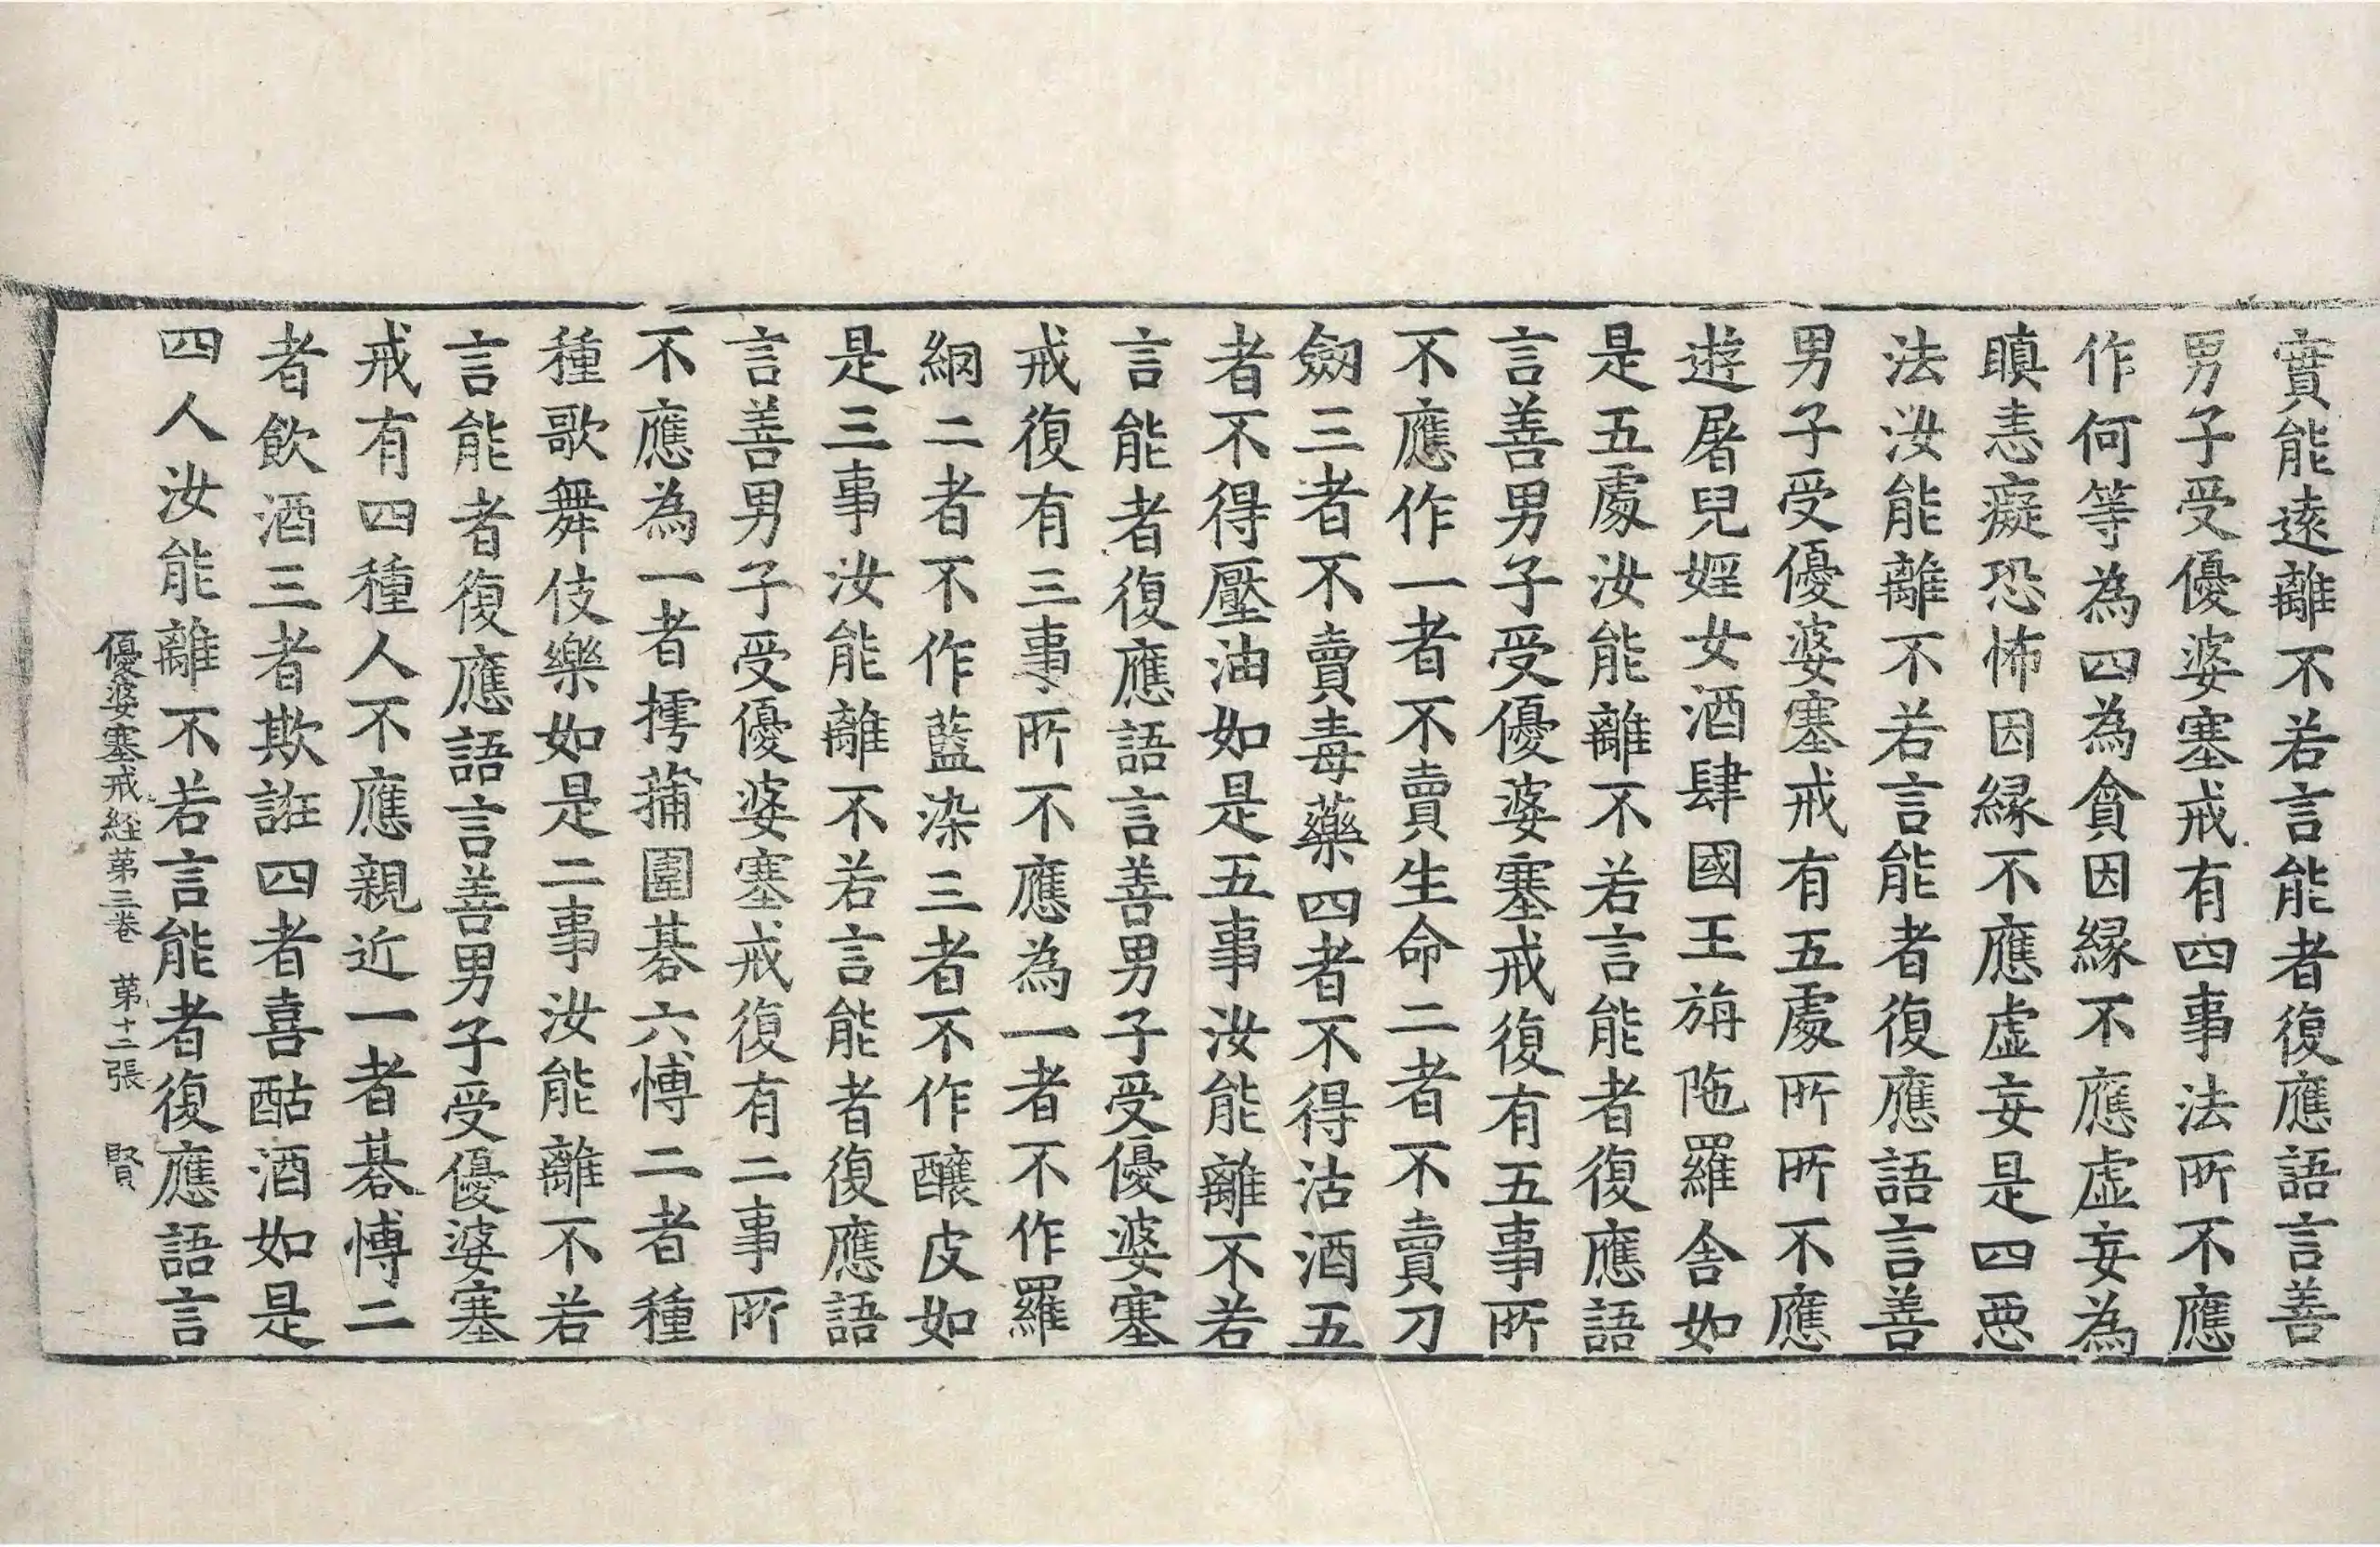 實能遠離不若言能者復應語言善
男子受優婆塞戒有四事法所不應
作何等為四為貪因緣不應虛妄為
瞋恚癡恐怖因緣不應虛妄是四惡
法汝能離不若言能者復應語言善
男子受優婆塞戒有五處所所不應
遊屠兒婬女酒肆國王旃陁羅舍如
是五處汝能離不若言能者復應語
言善男子受優婆塞戒復有五事所
不應作一者不賣生命二者不賣刀
劒三者不賣毒藥四者不得沽酒五
者不得壓油如是五事汝能離不若
言能者復應語言善男子受優婆塞
戒復有三事所不應為一者不作羅
網二者不作藍染三者不作釀皮如
是三事汝能離不若言能者復應語
言善男子受優婆塞戒復有二事所
不應為一者摴蒱圍碁六愽二者種
種歌舞伎樂如是二事汝能離不若
言能者復應語言善男子受優婆塞
戒有四種人不應親近一者碁愽二
者飲酒三者欺誑四者喜酤酒如是
四人汝能離不若言能者復應語言
優婆塞戒經第三卷 第十二張 賢